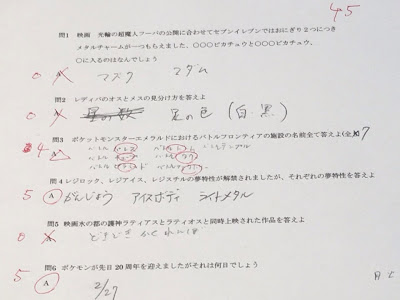 45
問1 映画 光輪の超魔人フーパの公開に合わせてセブンイレブンではおにぎり2つにつき
メタルチャームが一つもらえました、〇〇〇ピカチュウと〇〇〇ピカチュウ、
〇に入るのはなんでしょう
0 A マスク マダム
問2 レディバのオスとメスの見分け方を答えよ
0 A 星の数 足の色 (白 黒)
問3 ポケットモンスターエメラルドにおけるバトルフロンティアの施設の名前全て答えよ(全 7
4 A バトル バトル
バトル バトル
バトル バトル
問4 レジロック、レジアイス、レジスチルの夢特性が解禁されましたが、それぞれの夢特性を答えよ
5 A がんじょう アイスボディ ライトメタル
問5 映画水の都の護神ラティアスとラティオスと同時上映された作品を答えよ
0 A どきどき かくれんぼ
問6 ポケモンが先日20周年を迎えましたがそれは何日でしょう
5 A 2/27